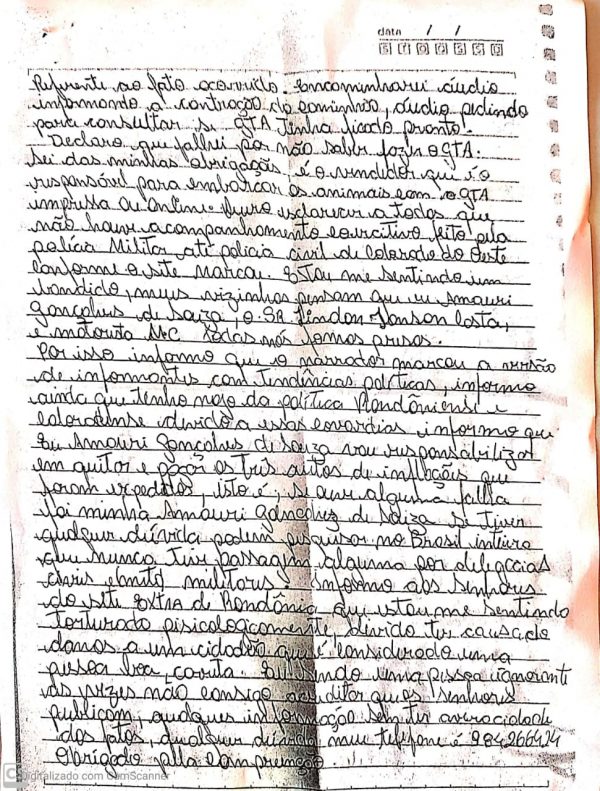 data / /
S T Q Q S S D
Referente ao fato ocorrido. Encaminharei áudio
informando a contração do caminhão, áudio pedindo
para consultar se GTA tenha ficado pronto.
Declaro que falhei por não saber fazer o GTA.
Sei das minhas obrigações, é o vendedor que é o
responsável para embarcar os animais com o GTA
impressa ou online. Quero esclarecer a todos que
não houve acompanhamento coercitivo feito pela
polícia Militar até polícia civil de Colorado do Oeste
conforme o site marcou. Estou me sentindo um
bandido, meus vizinhos pensam que eu Amauri
Gonçalves de Souza, o Sr Lindon Jonson Costa,
e motorista M.C. todas nós somos presos.
Por isso informo que o narrador marcou a versão
de informantes com tendências políticas, informo
ainda que tenho nojo da política Rondôniense e
coloradense devido a essas covardias informo que
Eu Amauri Gonçalves de Souza vou responsabilizar
em quitar e pagar os três autos de inflações que
foram expedidos, isto é, se ouve alguma falha
foi minha Amauri Gonçalvez de Souza se tiver
qualquer dúvida podem pesquisar no Brasil inteiro
que nunca tive passagem alguma por delegacias
civis e militares informo aos senhores
do site Extra de Rondônia que estou me sentindo
torturado pisicologicamente, devido ter causado
danos a um cidadão que é considerado uma
pessoa boa, correta. Eu sendo uma pessoa ignorante
as vezes não consigo acreditar que os senhores
publicam, qualquer informação sem ter averacidade
dos fatos, qualquer dúvida meu telefone é 984266424
Obrigado pella compreenção
Digitalizado com CamScanner